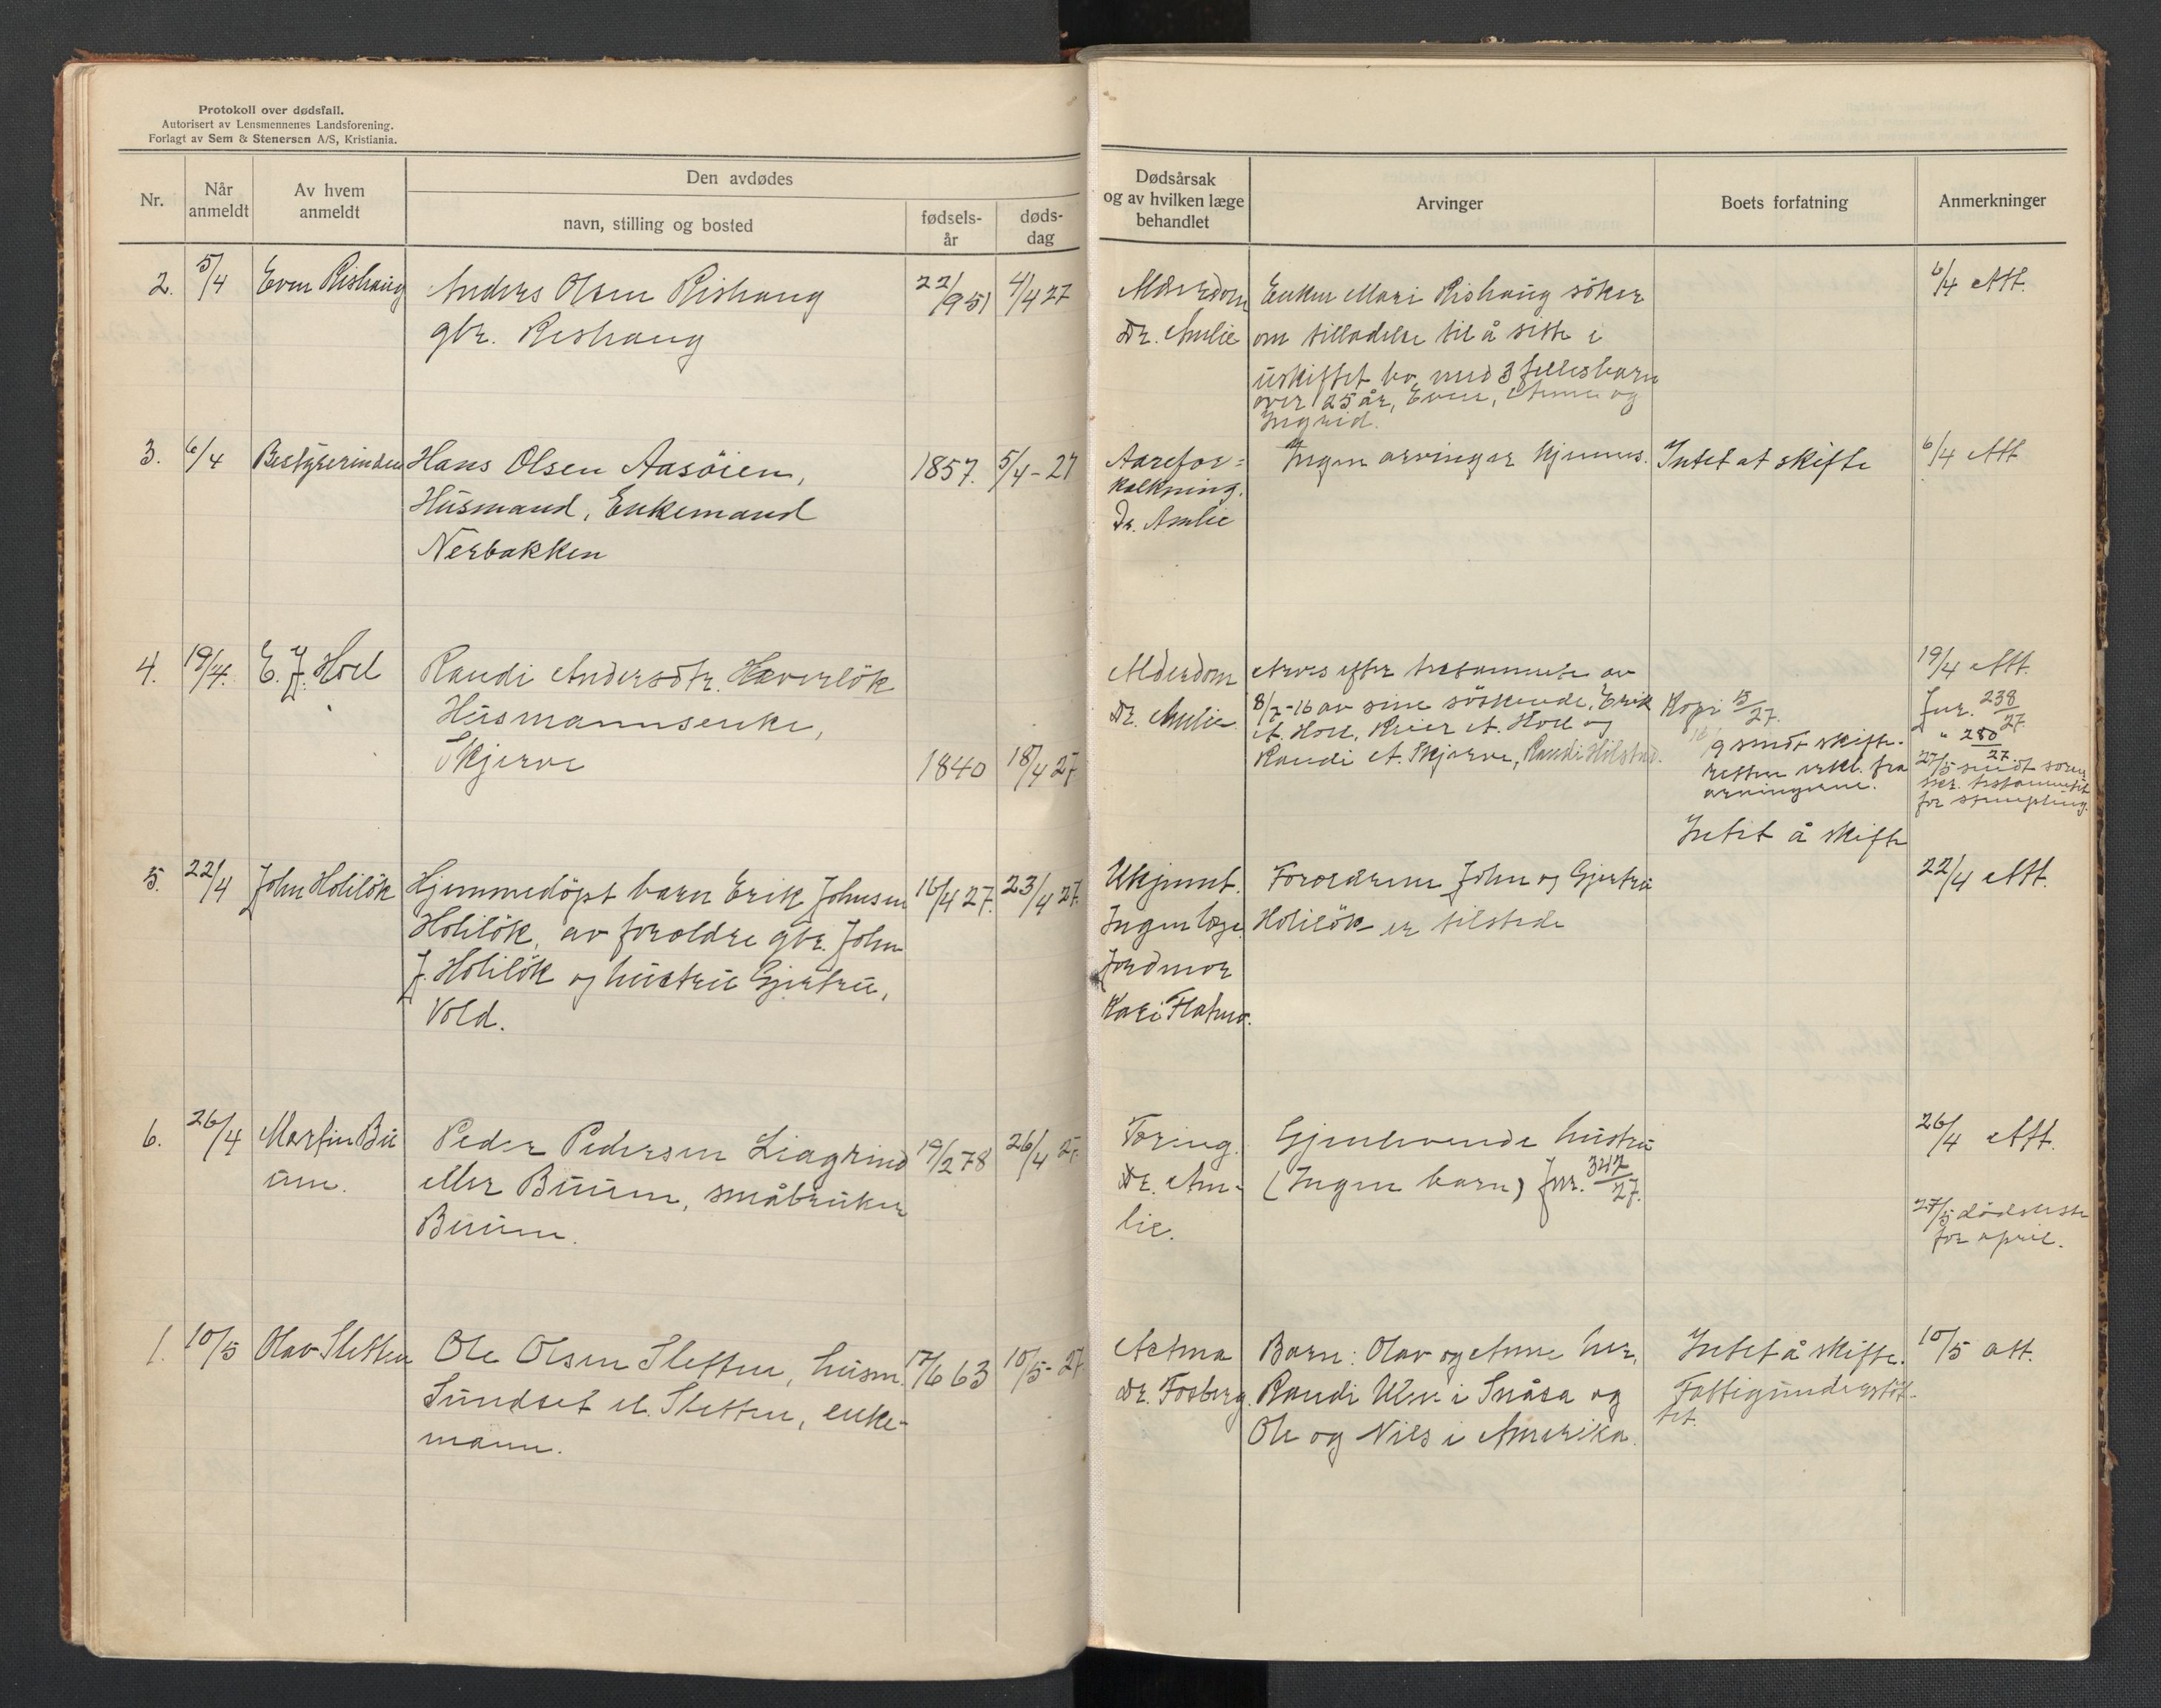 Protokoll over dødsfall.
Autorisert av Lensmennenes Landsforening.
Forlagt av Sem & Stenersen A/S, Kristiania.
Nr.
Når anmeldt
Av hvem anmeldt
Den avdødes
navn, stilling og bosted
fødsels-
år
døds-
dag
Dødsårsak
og av hvilken læge
behandlet
Arvinger
Boets forfatning
Anmerkninger
2. 5/4 Even Rishaug
Anders Olsen Rishaug
gbr. Rishaug
22/9 51 4/4 27
Alderdom
Dr. Amlie
Enken Mari Rishaug söker
om tilladelse til å sitte i
uskiftet bo med 3 fellesbarn
over 25 år, Even, Anne og
Ingrid.
6/4 Att.
3. 6/4 Bestyrerinden
Hans Olsen Aasöien,
Husmand, Enkemand
Nerbakken
1857. 5/4-27
Aarefor=
kalkning.
Dr. Amlie
Ingen arvinger kjennes.
Intet at skifte
6/4 Att
4. 19/4. E. J. Hoel
Randi Andersdtr. Haverlök
Husmannsenke,
Skjerve
1840 18/4 27
Alderdom
Dr. Amlie
Arves efter testamente av
8/7-16 av sine söskende, Erik
A. Hoel, Reier A. Hoel og
Randi A. Skjerve, Randi Hilstad.
Kopi 15/27.
16/9 sendt skifte-
retten erkl. fra
arvingerne.
Intet å skifte
19/4 Att.
Jnr. 238/27.
" 280/27.
27/5 sendt soren
skr. testamentet
for stempling.
5. 22/4 John Holilök
Hjemmedöpt barn Erik Johnsen
Holilök, av foreldre gbr. John
J. Holilök og hustru Gjertru,
Vold.
16/4 27. 23/4 27.
Ukjent.
Ingen læge.
Jordmor
Kari Flatmo.
Foreldrene John og Gjertru
Holilök er tilstede
22/4 Att.
6. 26/4 Martin Bu
um.
Peder Pedersen Liagrind
eller Buum, småbruker
Buum.
19/2 78 26/4 27
Tæring.
Dr. Am-
lie.
Gjenlevende hustru
(Ingen barn) Jnr. 347/27.
26/4 Att.
27/5 dödsliste
for april.
1. 10/5 Olav Sletten
Ole Olsen Sletten, husm.
Sundset el. Sletten, enke-
mann.
17/6 63 10/5-27
Astma
Dr. Fosberg.
Barn: Olav og Anne her,
Randi Ulven i Snåsa og
Ole og Nils i Amerika.
Intet å skifte.
Fattigunderstöt-
tet.
10/5 att.